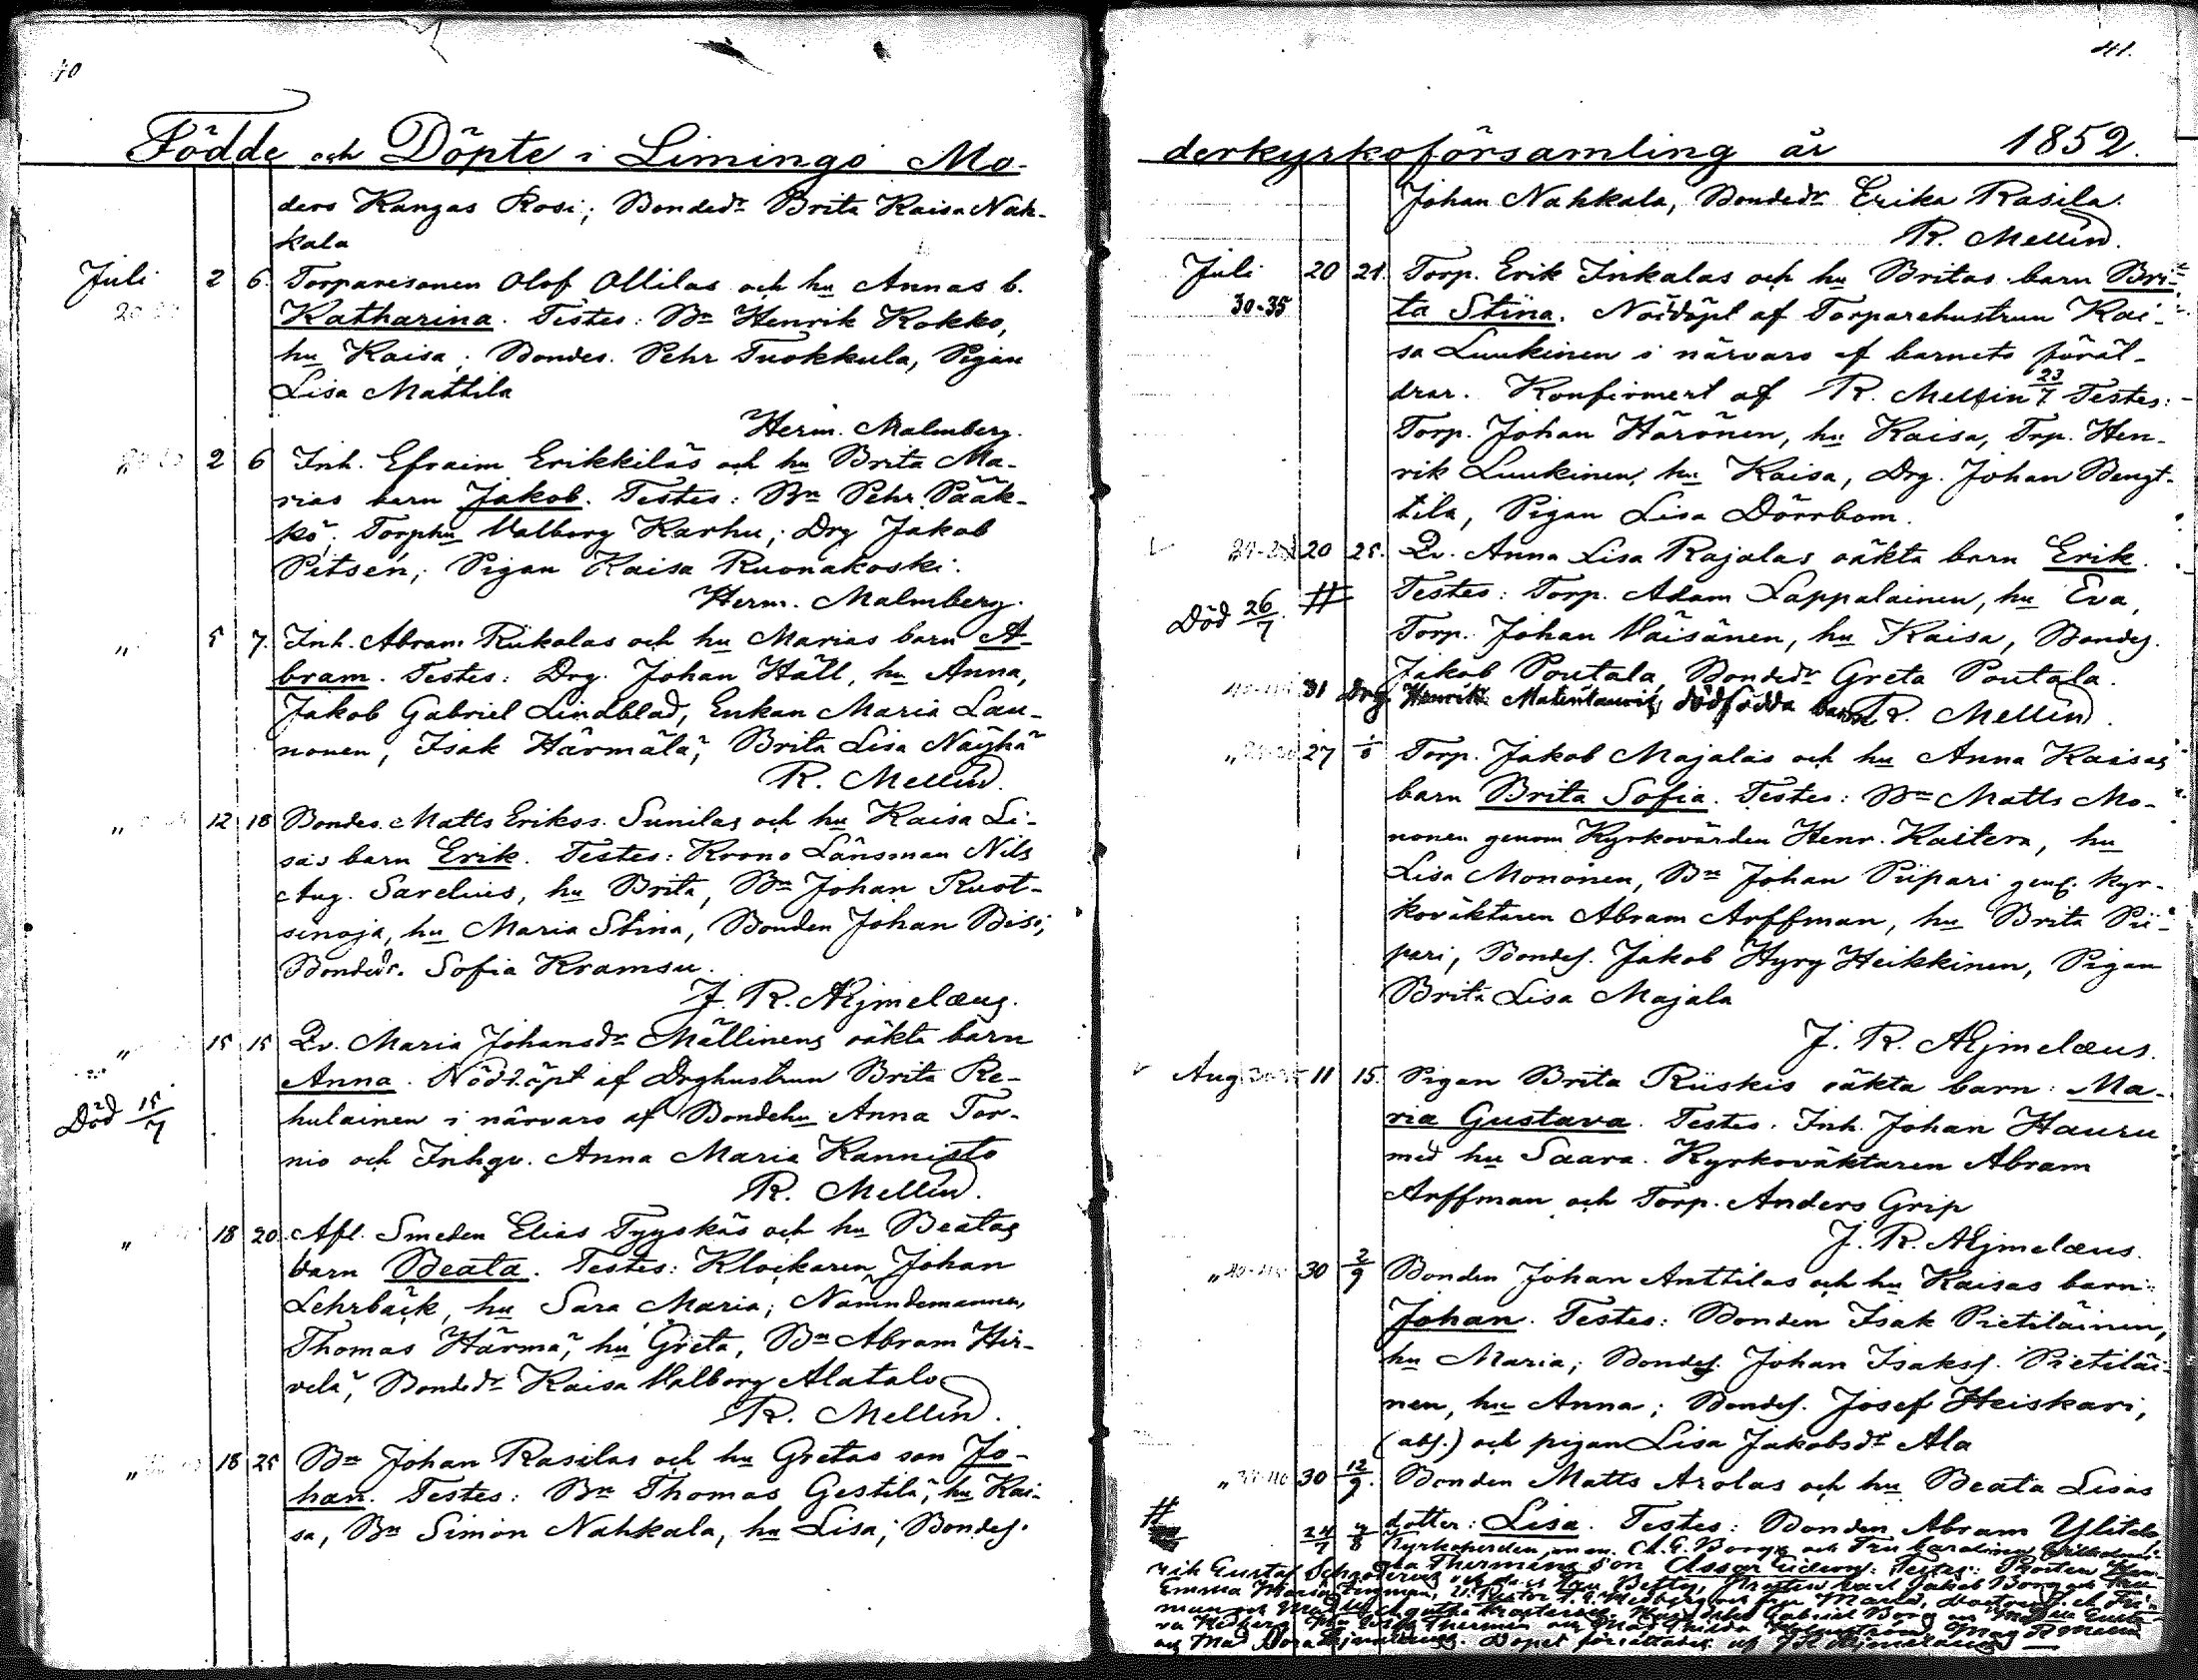 40
Födde och Döpte i Limingo Mo-
ders Kangas Rosi; Bondedr Brita Kaisa Nah-
kala
Juli 2 6. Torparesonen Olof Ollilas och hu Annas b.
Katharina. Testes: Bn Henrik Kokko,
hu Kaisa; Bondes. Pehr Tuokkula, Pigan
Lisa Mattila
Herm. Malmberg.
2 6 Inh. Efraim Erikkiläs och hu Brita Ma-
rias barn Jakob. Testes: Bn Pehr Pääk-
kö; Torphu Valborg Karhu; Drg Jakob
Pitsén; Pigan Kaisa Ruonakoski.
Herm. Malmberg.
„ 5 7. Inh. Abram Riikolas och hu Marias barn A-
bram. Testes: Drg. Johan Häll, hu Anna,
Jakob Gabriel Lindblad, Enkan Maria Lau-
nonen, Isak Härmälä, Brita Lisa Näyhä
R. Mellin.
„ 12 18 Bondes. Matts Erikss. Sunilas och hu Kaisa Li-
sas barn Erik. Testes: Krono Länsman Nils
Aug. Sarelius, hu Brita, Bn Johan Ruot-
sinoja, hu Maria Stina, Bonden Johan Bisi;
Bondedr. Sofia Kramsu.
J. R. Aejmelæus.
„ 15 15 Qv. Maria Johansdr Mällinens oäkta barn
Anna. Nöddöpt af Drghustrun Brita Re-
Död 15/7 hulainen i närvaro af Bondehu Anna Tor-
nio och Inhqv. Anna Maria Kannisto
R. Mellin.
„ 18 20. Afl. Smeden Elias Tyyskäs och hu Beatas
barn Beata. Testes: Klockaren Johan
Lehrbäck, hu Sara Maria; Nämndemannen
Thomas Härmä, hu Greta, Bn Abram Hir-
velä, Bondedr Kaisa Valborg Alatalo
R. Mellin.
„ 18 25 Bn Johan Rasilas och hu Gretas son Jo-
han. Testes: Bn Thomas Gestilä, hu Kai-
sa, Bn Simon Nahkala, hu Lisa; Bondes.
41.
derkyrkoförsamling år 1852.
Johan Nahkala, Bondedr Erika Rasila.
R. Mellin.
Juli 20 21. Torp. Erik Inkalas och hu Britas barn Bri-
30-35 ta Stina. Nöddöpt af Torparehustrun Kai-
sa Luukinen i närvaro af barnets föräl-
drar. Konfirmert af R. Mellin 23/7 Testes:
Torp. Johan Härönen, hu Kaisa, Trp. Hen-
rik Luukinen, hu Kaisa, Drg. Johan Bengt-
tila, Pigan Lisa Dörrbom.
20 25. Qv. Anna Lisa Rajalas oäkta barn Erik.
Död 26/7. # Testes: Torp. Adam Lappalainen, hu Eva,
Torp. Johan Väisänen, hu Kaisa, Bondes.
Jakob Poutala, Bondedr Greta Poutala.
31 Drg. Henrik Matinlauris dödfödda barn R. Mellin.
„ 27 1/8 Torp. Jakob Majalas och hu Anna Kaisas
barn Brita Sofia. Testes: Bn Matts Mo-
nonen genom Kyrkovärden Henr. Kaitera, hu
Lisa Mononen, Bn Johan Piipari gen. Kyr-
koväktaren Abram Arffman, hu Brita Pii-
pari, Bondes. Jakob Hyry Heikkinen, Pigan
Brita Lisa Majala
J. R. Aejmelæus.
Aug 11 15. Pigan Brita Riiskis oäkta barn: Ma-
ria Gustava. Testes. Inh. Johan Hauru
med hu Saara. Kyrkoväktaren Abram
Arffman och Torp. Anders Grip
J. R. Aejmelæus.
„ 30 2/9 Bonden Johan Anttilas och hu Kaisas barn:
Johan. Testes: Bonden Isak Pietiläinen,
hu Maria; Bondes. Johan Isakss. Pietiläi-
nen, hu Anna; Bondes. Josef Heiskari,
(abs.) och pigan Lisa Jakobsdr Ala
„ 30 12/9. Bonden Matts Arolas och hu Beata Lisas
dotter: Lisa. Testes: Bonden Abram Ylitalo
# 24/7 Kyrkoherden
rik Gustaf
Emma Maria
och Mad Dopet förrättades af J R Aejmelæus